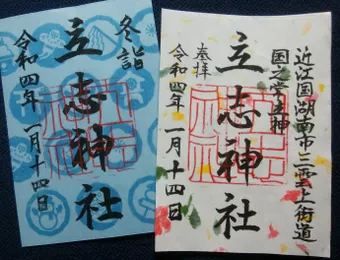 冬詣
立志神社
令和四年 一月十四日
近江国湖南市三雲上街道
国之常立神
立志神社
奉拝
令和四年 一月十四日